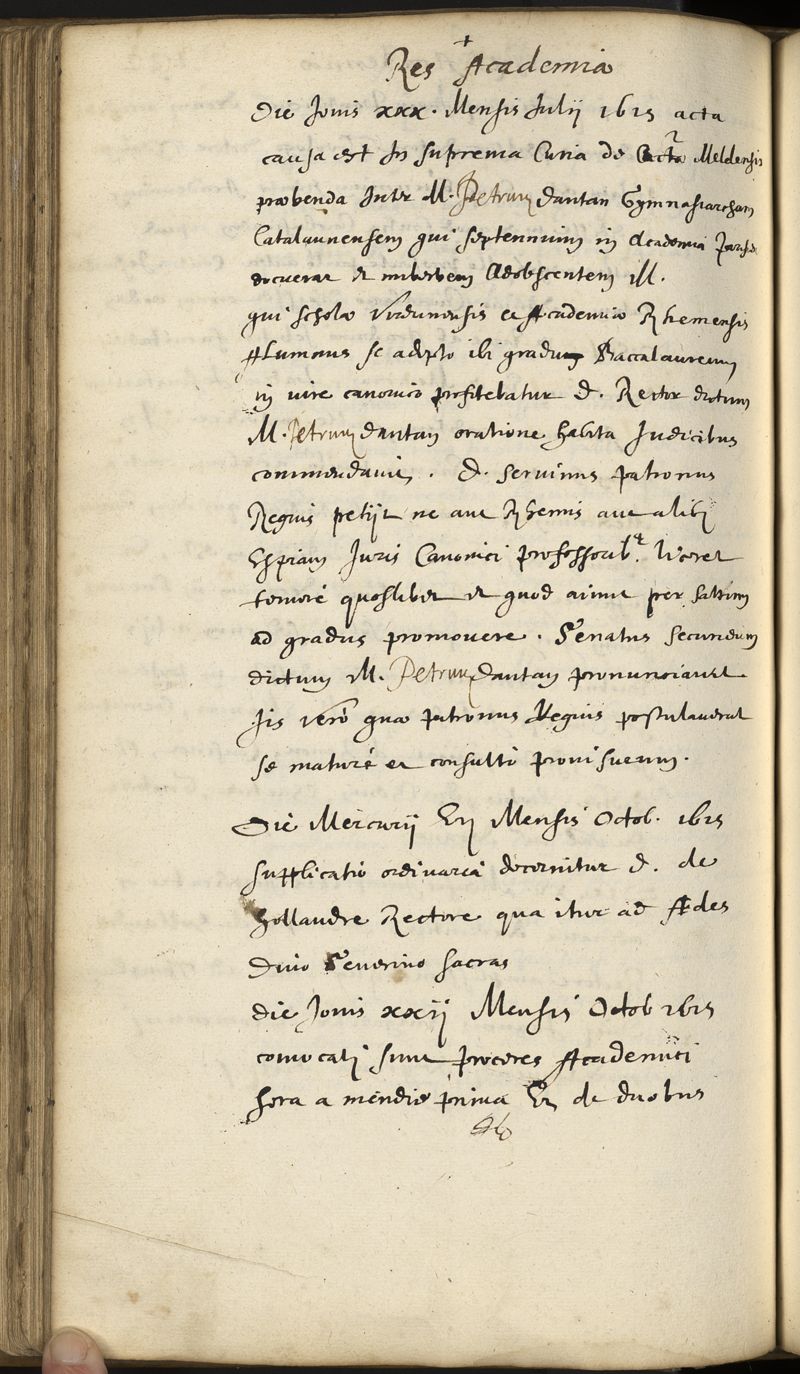 Res Academia
Die Jovis xxx. Mensis Julij 1615 acta
causa est In suprema Curia de Meldensis
præbenda Inter M. Petrum dantan Gymnasiarcham
Catalaunensem qui septennium in Academia
docuerat et imberbem Adolescentem M.
qui scholæ Virdunensis et Academiæ Rhemensis
Alumnus se adepto ibi gradum Baccalaureum
in iure canonico profitebatur D. Rector dictum
M. Petrum dantan oratione habita Judicibus
commendavit. D. Servinus patronus
Regius petijt ne aut Rhemis aut alibi
Juris Canonici professorib. liceret
temerè quoslibet et quod aiunt per saltum
ad gradus promovere. Senatus secundum
dictum M. Petrum dantan pronunciavit
Jis verò quæ patronus Regius postulaverat
se maturè et consultò
Die Mercurij Mensis Octob. 1615
supplicatio ordinaria decernitur D. de
hollandre Rectore qua itur ad Ædes
Divo Severino sacras
die Jovis xxij Mensis Octob 1615
convocati sunt proceres Academici
hora a meridie prima de duobus